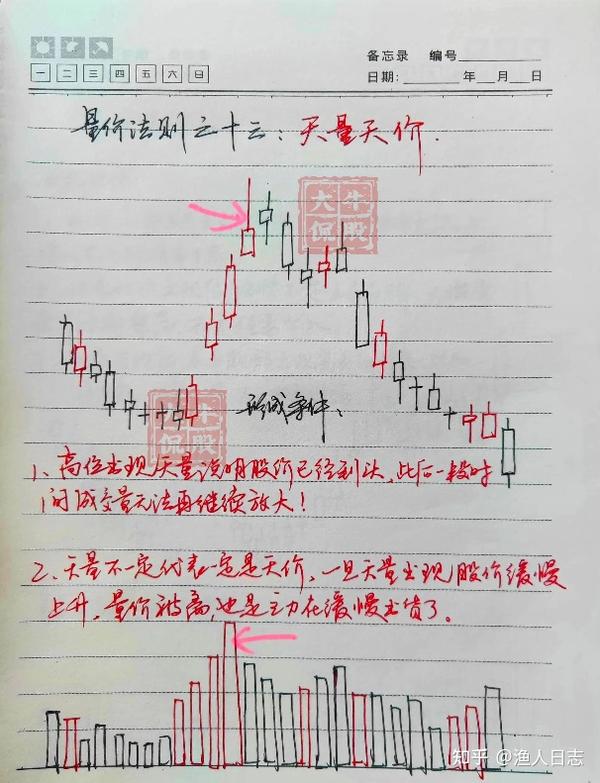 备忘录 编号
一 二 三 四 五 六 日
日期: 年 月 日
量价法则之十三：天量天价.
大牛
侃股
大牛
侃股
形成条件、
1、高位出现天量说明股价已经到头，此后一段时
间成交量无法再继续放大！
2、天量不一定代表一定是天价，一旦天量出现股价缓慢
上升，量价背离，也是主力在缓慢出货了。
知乎 @渔人日志